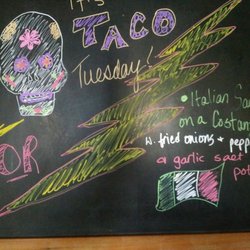 It's
TACO
Tuesday!
OR
• Italian Sau
on a Costan
w. fried onions + pepp
a garlic salt
pot